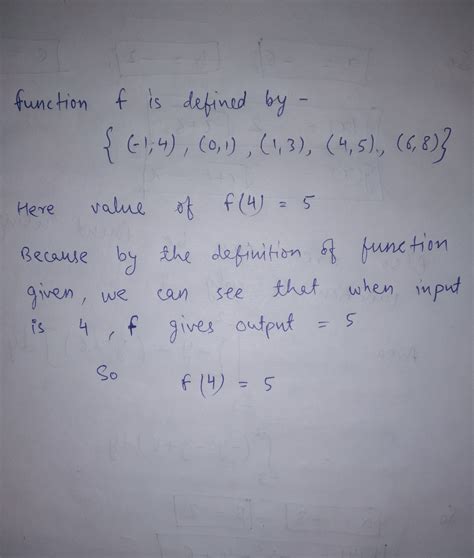 function f is defined by -
{ (-1,4), (0,1), (1,3), (4,5), (6,8)}
Here value of f(4) = 5
Because by the definition of function
given, we can see that when input
is 4, f gives output = 5
So f(4) = 5